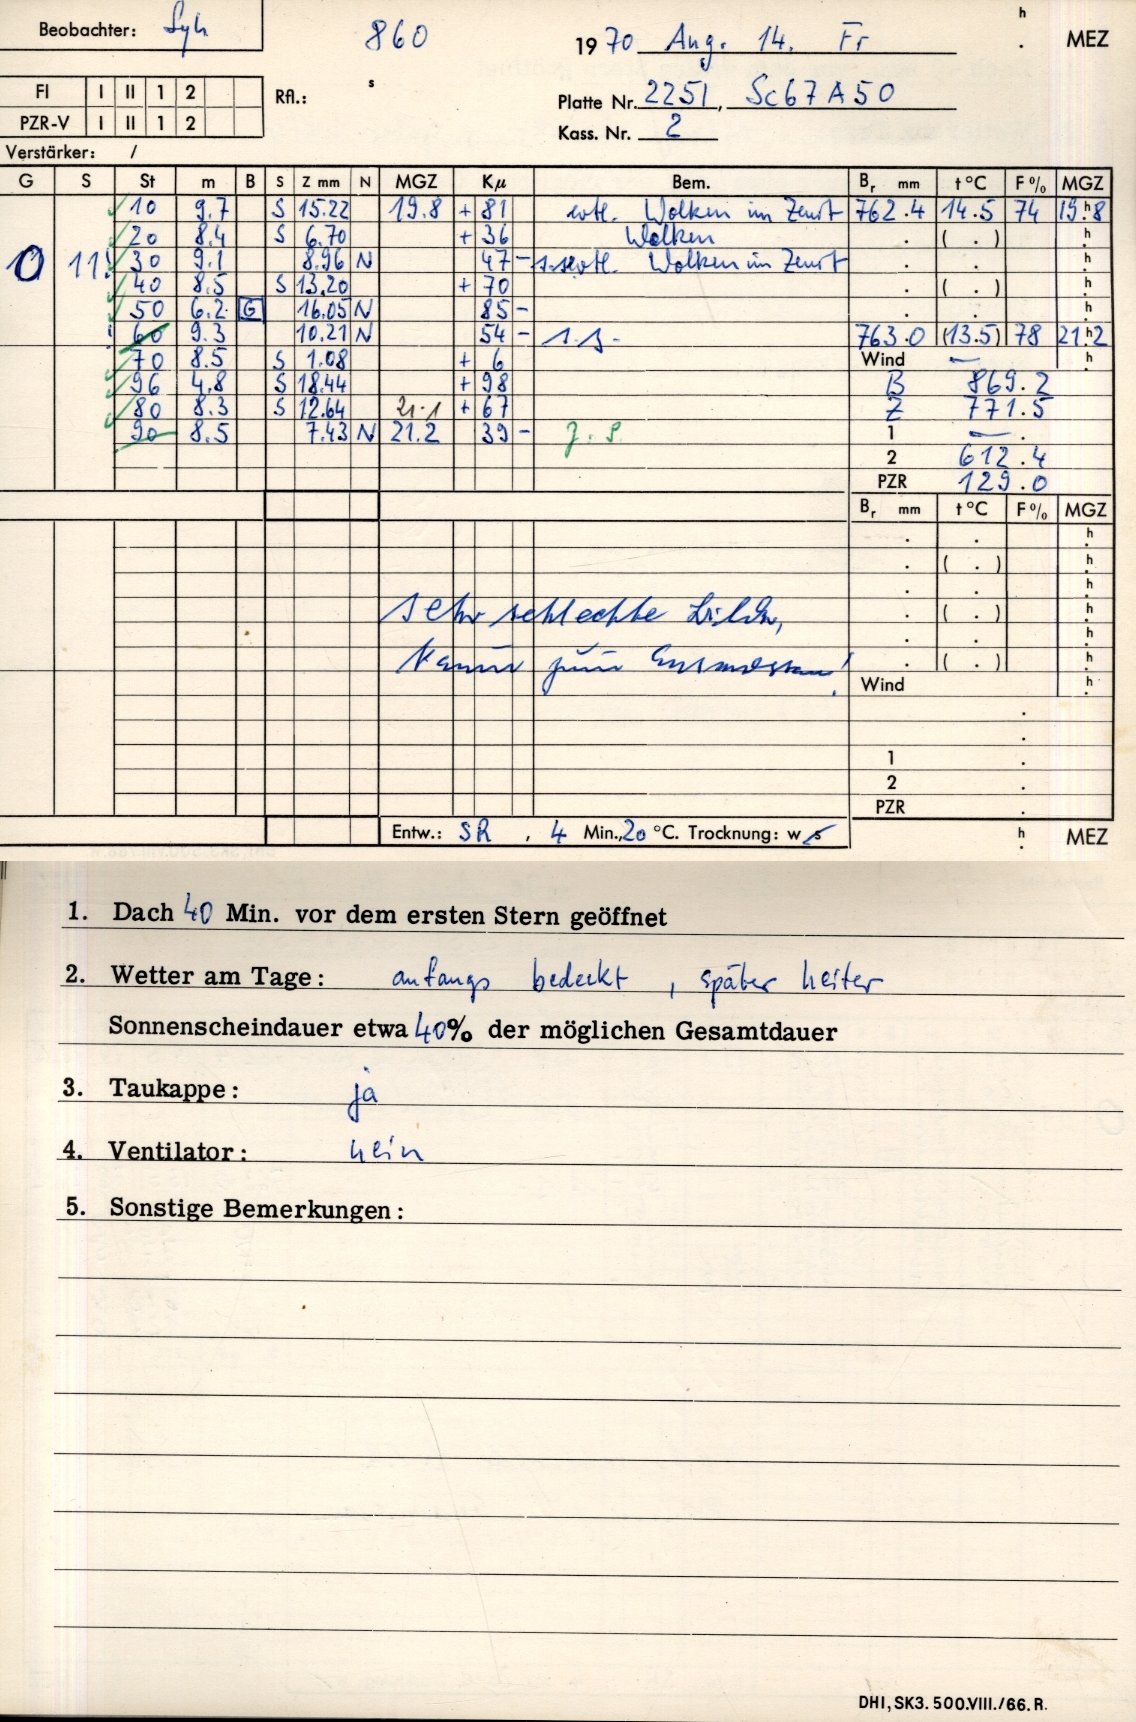 Beobachter: Lyh 860 h
19 70 Aug. 14. Fr . MEZ
FI I II 1 2 Rfl.: s
Platte Nr. 2251, Sc67A50
PZR-V I II 1 2
Kass. Nr. 2
Verstärker: /
G S St m B S Z mm N MGZ Kμ Bem. Br mm t °C F % MGZ
10 9.7 S 15.22 19.8 + 81 evtl. Wolken im Zenit 762.4 14.5 74 19.h8
20 8.4 S 6.70 + 36 Wolken . ( . ) h
0 11! 30 9.1 8.96 N 47 - evtl. Wolken im Zenit . . h
40 8.5 S 13.20 + 70 . ( . ) h
50 6.2 G 16.05 N 85 - . . h
60 9.3 10.21 N 54 - s.s. 763.0 (13.5) 78 21.h2
70 8.5 S 1.08 + 6 Wind — h
96 4.8 S 18.44 + 98 B 869.2
80 8.3 S 12.64 21.1 + 67 Z 771.5
90 8.5 7.43 N 21.2 39 - z.S. 1 — .
2 612.4
PZR 129.0
Br mm t °C F % MGZ
. . h
. ( . ) h
. . h
sehr schlechte Bilder, . ( . ) h
. . h
kaum zum Ausmessen! . ( . ) h
Wind h
.
.
1 .
2 .
PZR .
Entw.: SR , 4 Min., 20 °C. Trocknung: w s h . MEZ
1. Dach 40 Min. vor dem ersten Stern geöffnet
2. Wetter am Tage: anfangs bedeckt, später heiter
Sonnenscheindauer etwa 40% der möglichen Gesamtdauer
3. Taukappe: ja
4. Ventilator: nein
5. Sonstige Bemerkungen:
DHI, SK3. 500.VIII./66. R.